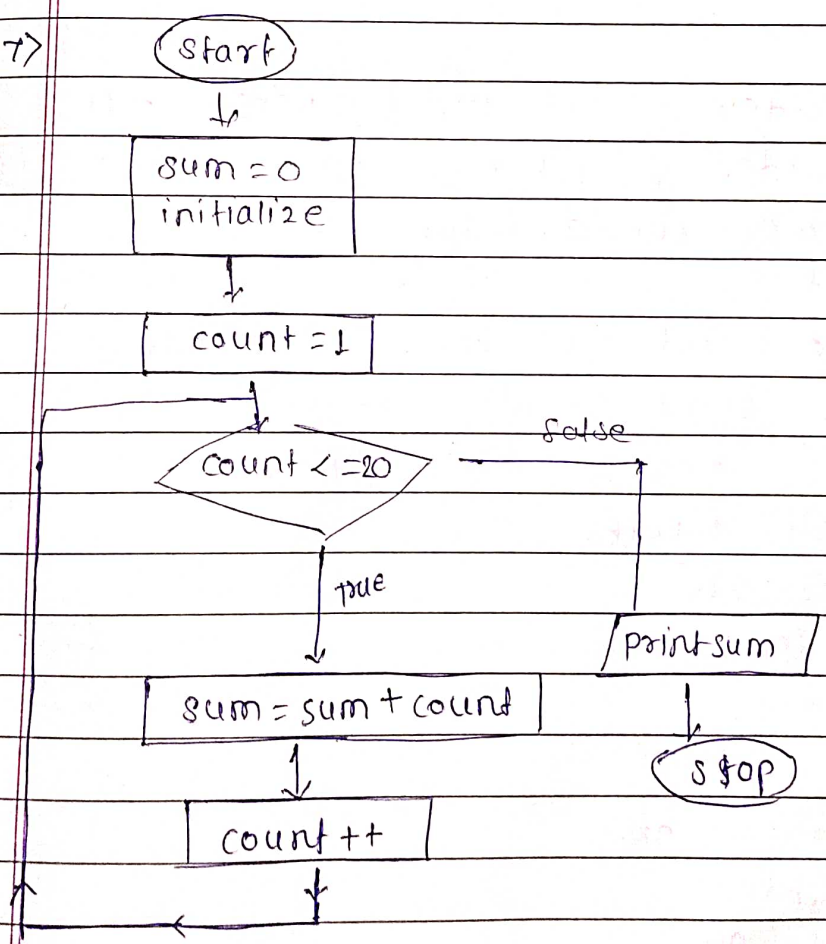 7>
start
sum = 0
initialize
count = 1
count < = 20
false
true
print sum
sum = sum + count
stop
count ++